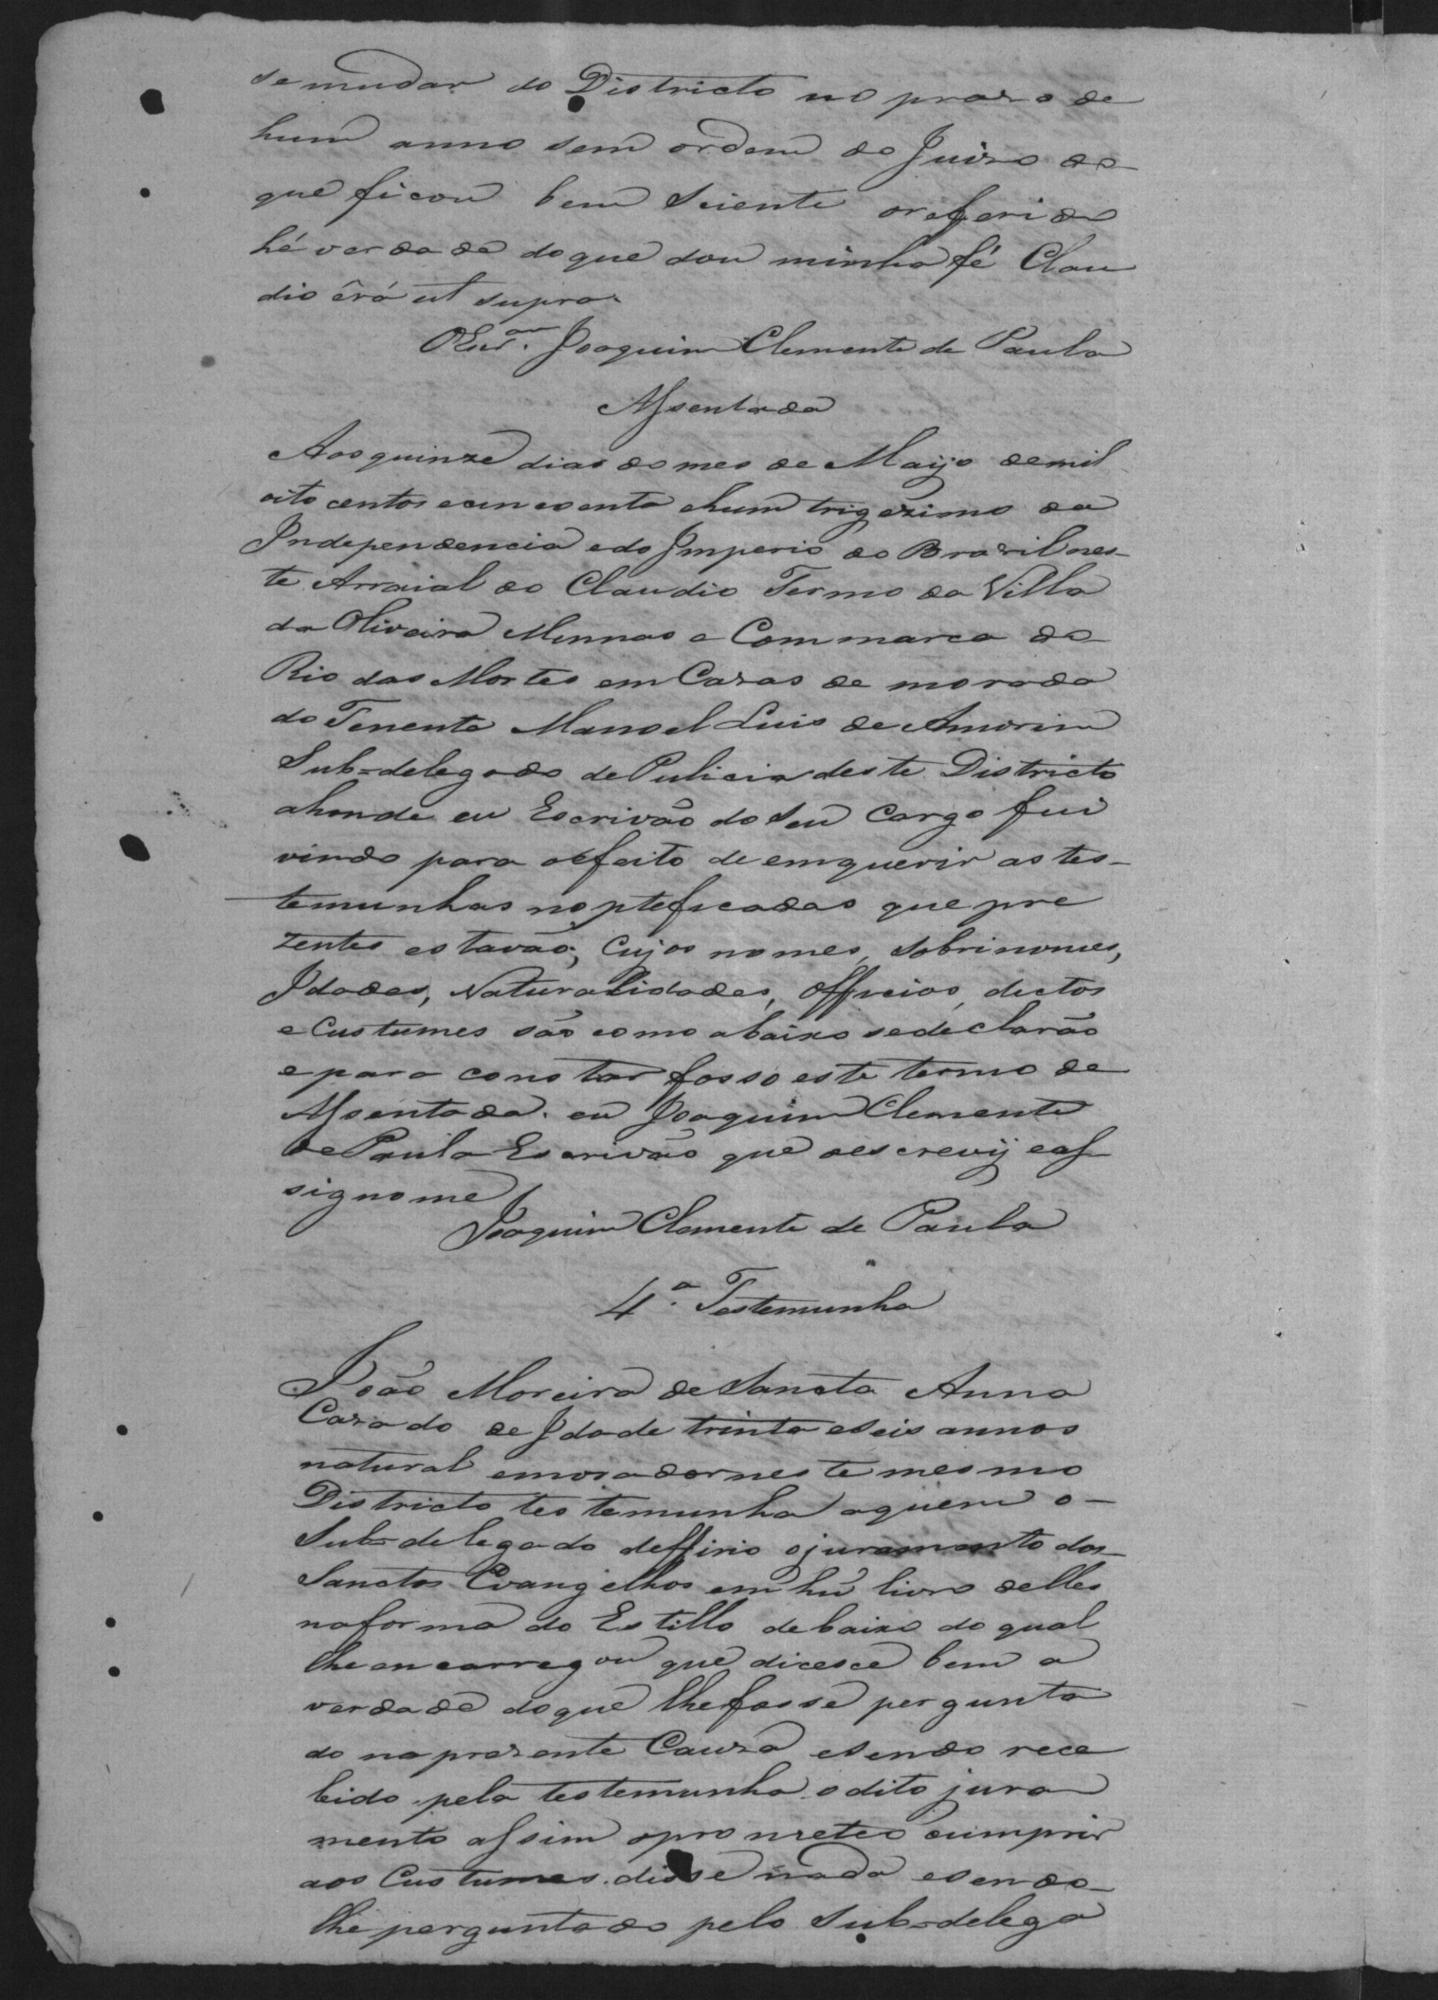 se mudar do Districto no prazo de
hum anno sem ordem do Juizo do
que ficou bem Sciente o referido
hé verdade do que dou minha fé Clau
dio érá ut supra
OEscr.am Joaquim Clemente de Paula
Assentada
Aos quinze dias do mes de Maijo de mil
oito centos e cincoenta e hum trigezimo da
Independencia e do Imperio do Brazil nes-
te Arraial do Claudio Termo da Villa
da Oliveira Minnas e Commarca do
Rio das Mortes em Cazas de morada
do Tenente Manoel Luis de Amorim
Sub=delegado de Pulicia deste Districto
ahonde eu Escrivão do Seu Cargo fui
vindo para o effeito de emquerir as tes-
temunhas nopteficadas que pre
zentes estavão; Cujos nomes, Sobrinomes,
Idades, Naturalidades, Officios, dictos
e Custumes são como abaixo se declarão
e para constar fasso este termo de
Assentada. eu Joaquim Clemente
de Paula Escrivão que o escrevij e as-
signo me
Joaquim Clemente de Paula
4.ª Testemunha
João Moreira de Sancta Anna
Cazado de Idade trinta e Seis annos
natural e morador neste mesmo
Districto testemunha a quem o-
Sub=delegado deffirio o juramento dos
Sanctos Evangelhos em hú livro delles
na forma do Estillo debaixo do qual
lhe encarregou que dicesce bem a
verdade do que lhe fosse pergunta
do na prezente Cauza e sendo rece
bido pela testemunha o dito jura
mento assim o prometeo cumprir
aos Custumes disse nada e sendo-
lhe perguntado pelo Sub=delega